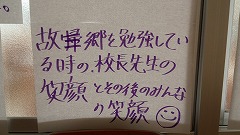 故郷を勉強してい
る時の、校長先生の
笑顔とその後のみんな
の笑顔